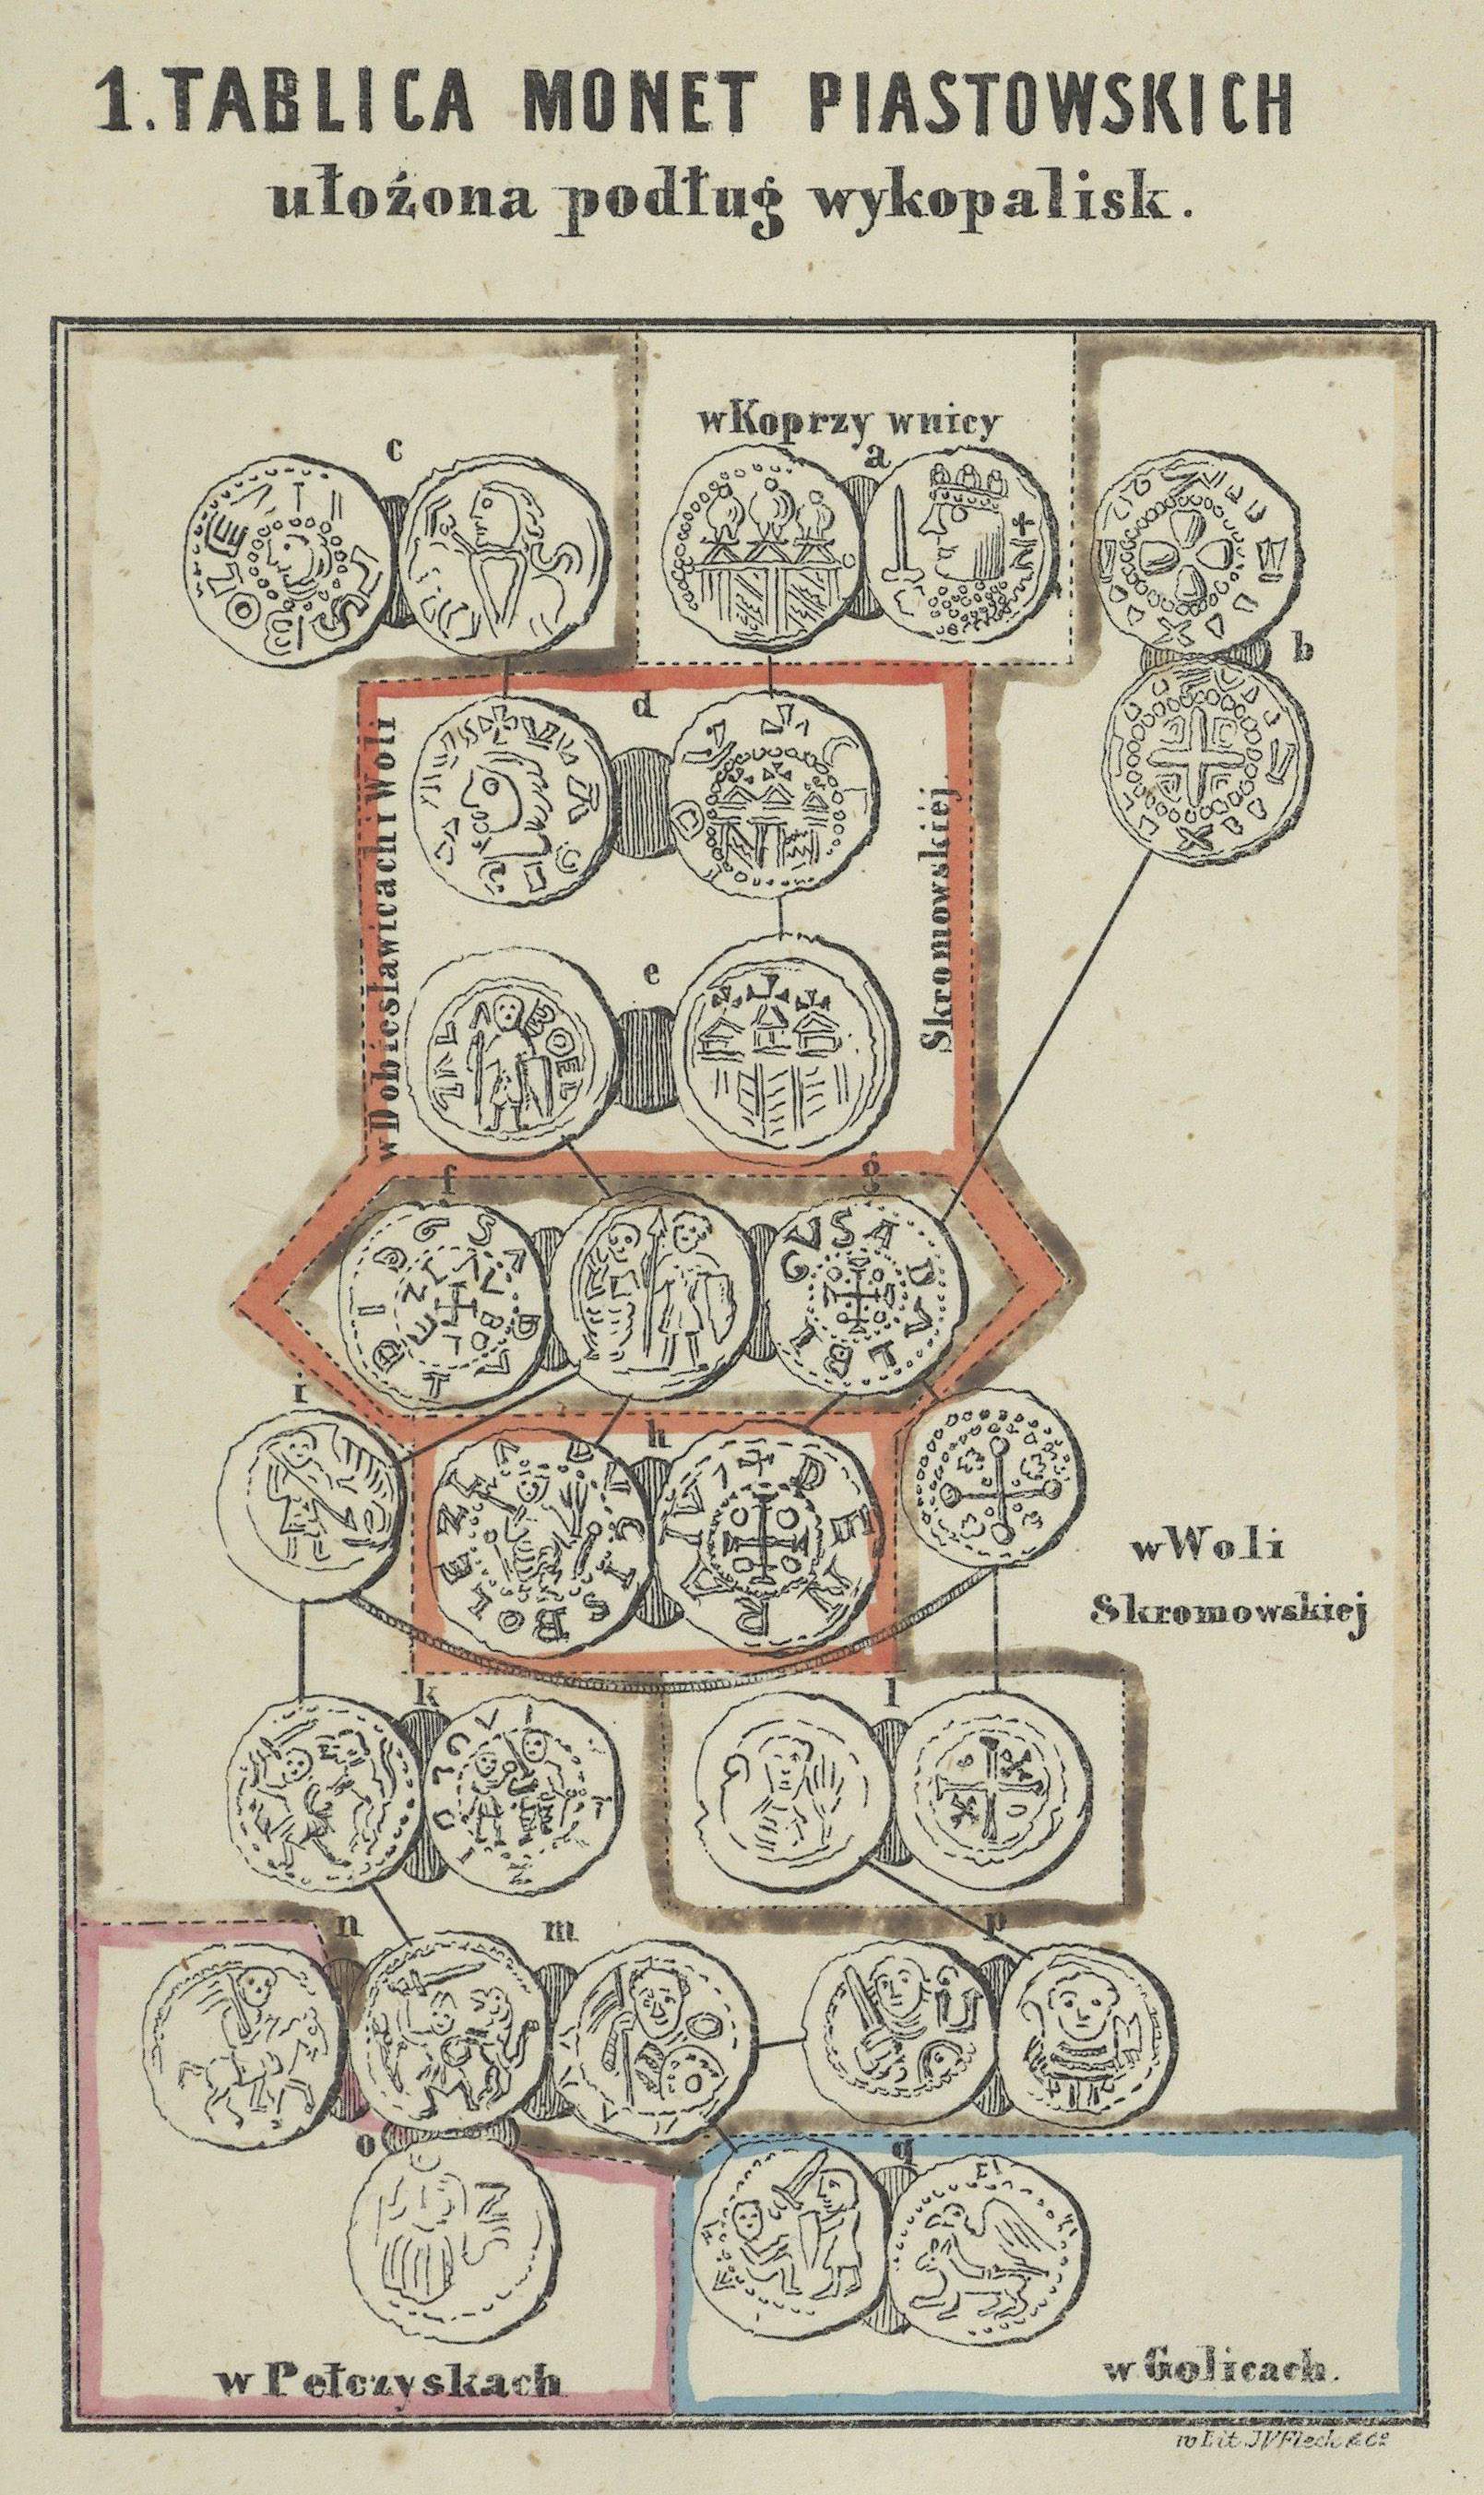 1. TABLICA MONET PIASTOWSKICH
ułożona podług wykopalisk.
w Koprzywnicy
c
a
b
d
w Dobiesławicach i Woli
Skromowskiej.
e
f
g
i
h
w Woli
Skromowskiej
k
l
n
m
p
o
q
w Pełczyskach
w Golicach.
w Lit. JVFleck & Co